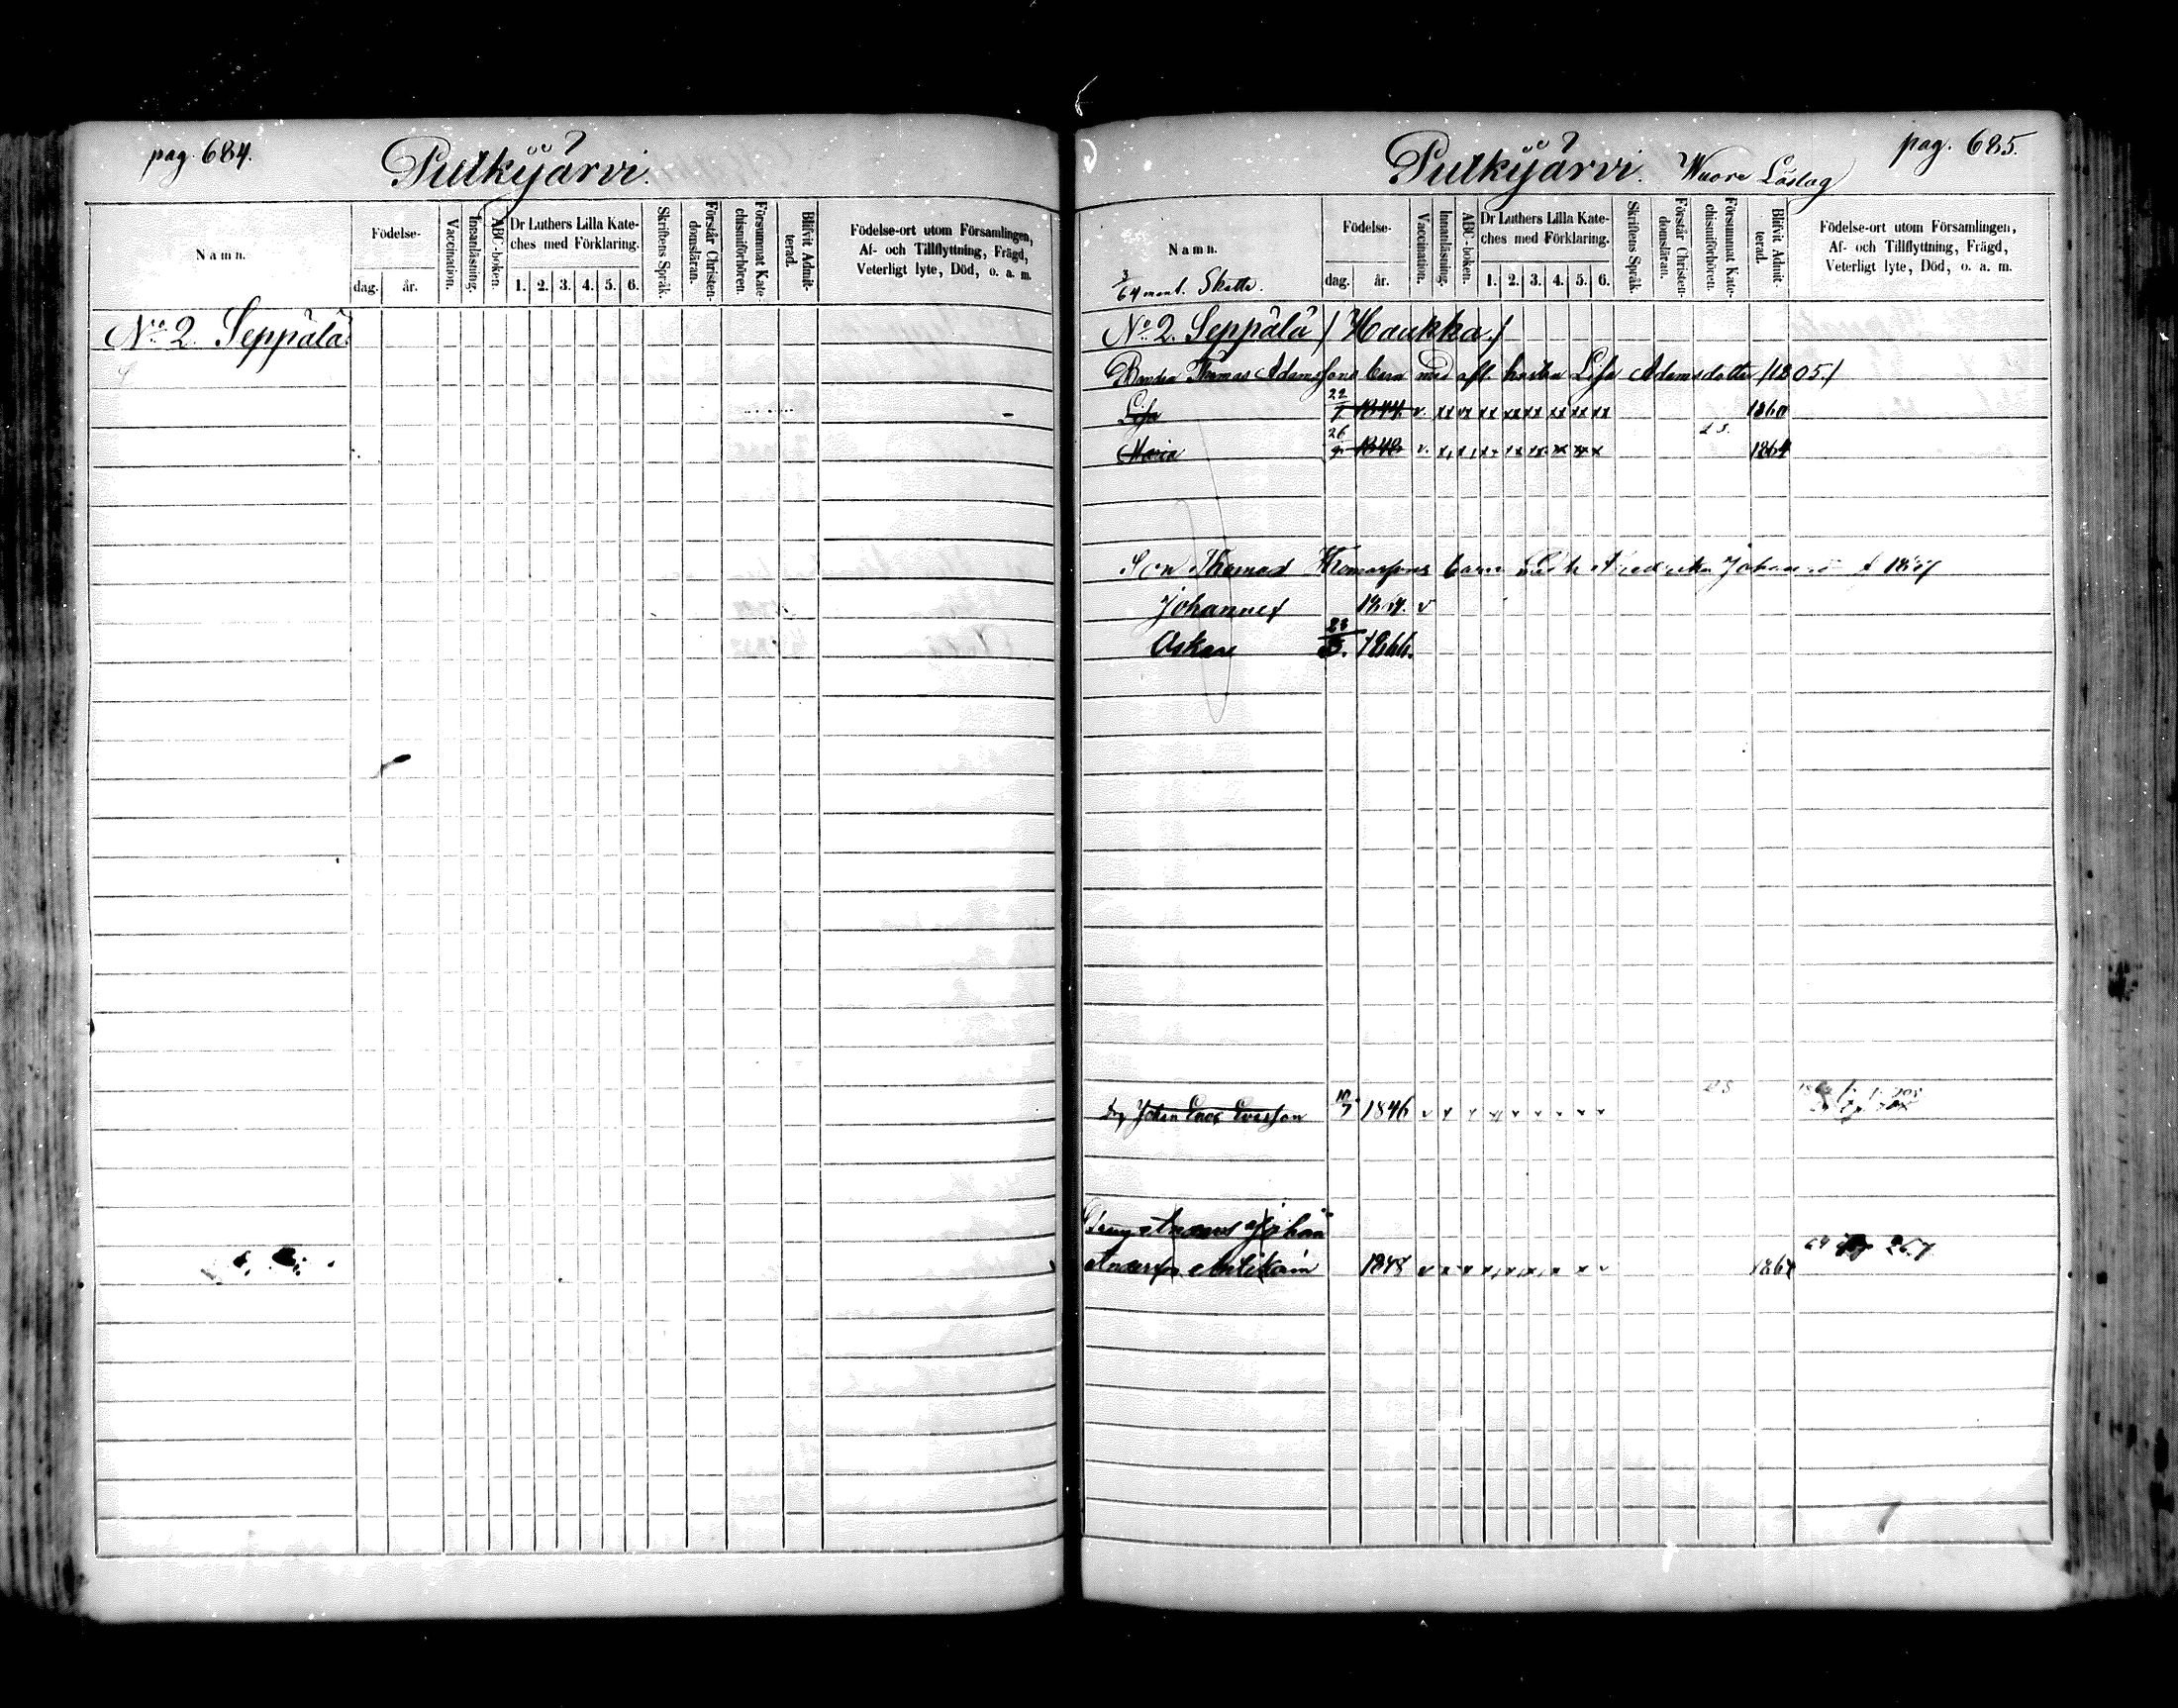 pag. 684.
Pulkyjärvi.
Namn.
Födelse-
dag.
år.
Vaccination.
Innanläsning.
ABC-boken.
Dr Luthers Lilla Kate-
ches med Förklaring.
1. 2. 3. 4. 5. 6.
Skriftens Språk.
Förstår Christen-
domsläran.
Försummat Kate-
chismiförhören.
Blifvit Admit-
terad.
Födelse-ort utom Församlingen,
Af- och Tillflyttning, Frägd,
Veterligt lyte, Död, o. a. m.
No 2 Seppälä
pag. 685.
Pulkyjärvi. Wuore Löslag
Namn.
3/64 mant. Skatte.
Födelse-
dag.
år.
Vaccination.
Innanläsning.
ABC-boken.
Dr Luthers Lilla Kate-
ches med Förklaring.
1. 2. 3. 4. 5. 6.
Skriftens Språk.
Förstår Christen-
domsläran.
Försummat Kate-
chismiförhören.
Blifvit Admit-
terad.
Födelse-ort utom Församlingen,
Af- och Tillflyttning, Frägd,
Veterligt lyte, Död, o. a. m.
No 2. Seppälä / Haukka /
Bonden Thomas Adamssons barn med afl. hustru Lisa Adamsdotter /1805/
Lisa 22/7 1844. v. xx xx xx xx xx xx xx xx 1860
Maria 26/9 1848 v. 1864
Son Thomas Thomassons barn med h. Fredrika Johansd
Johannes v
Oskar 23/3. 1866.
Johan Enos Enosson 10/7 1846 v x x x x x x x x
Andersson 1848 v x x x x x x x v 186
64 267